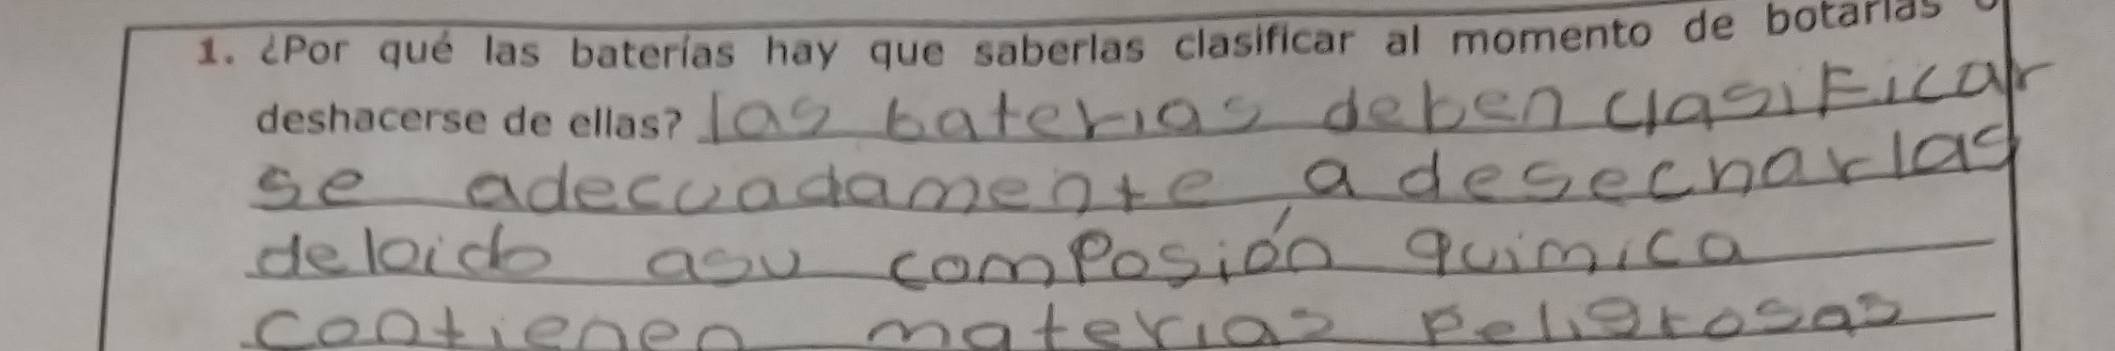 1. ¿Por qué las baterías hay que saberlas clasificar al momento de botarlas o
deshacerse de ellas? las baterias deben clasificar
se adecuadamente a desecharlas
debido asu composión quimica
contienen materias peligrosas